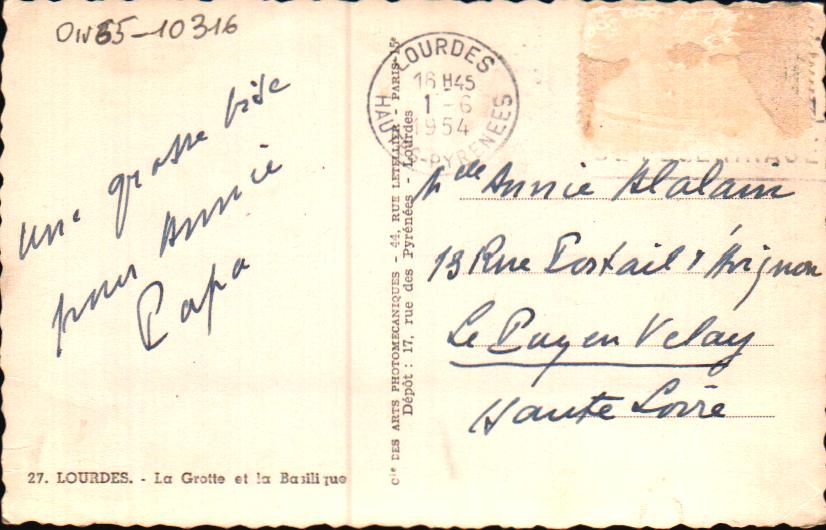 OW65-10316
une grosse bise
pour Annie
Papa
27. LOURDES. - La Grotte et la Basilique
Cie DES ARTS PHOTOMECANIQUES - 44, RUE LETELLIER - PARIS-15e
Dépôt : 17, rue des Pyrénées - Lourdes
LOURDES
16 H45
1 - 6
1954
HAUTES-PYRENEES
Mlle Annie Alalain
13 Rue Portail d'Avignon
Le Puy en Velay
Haute Loire